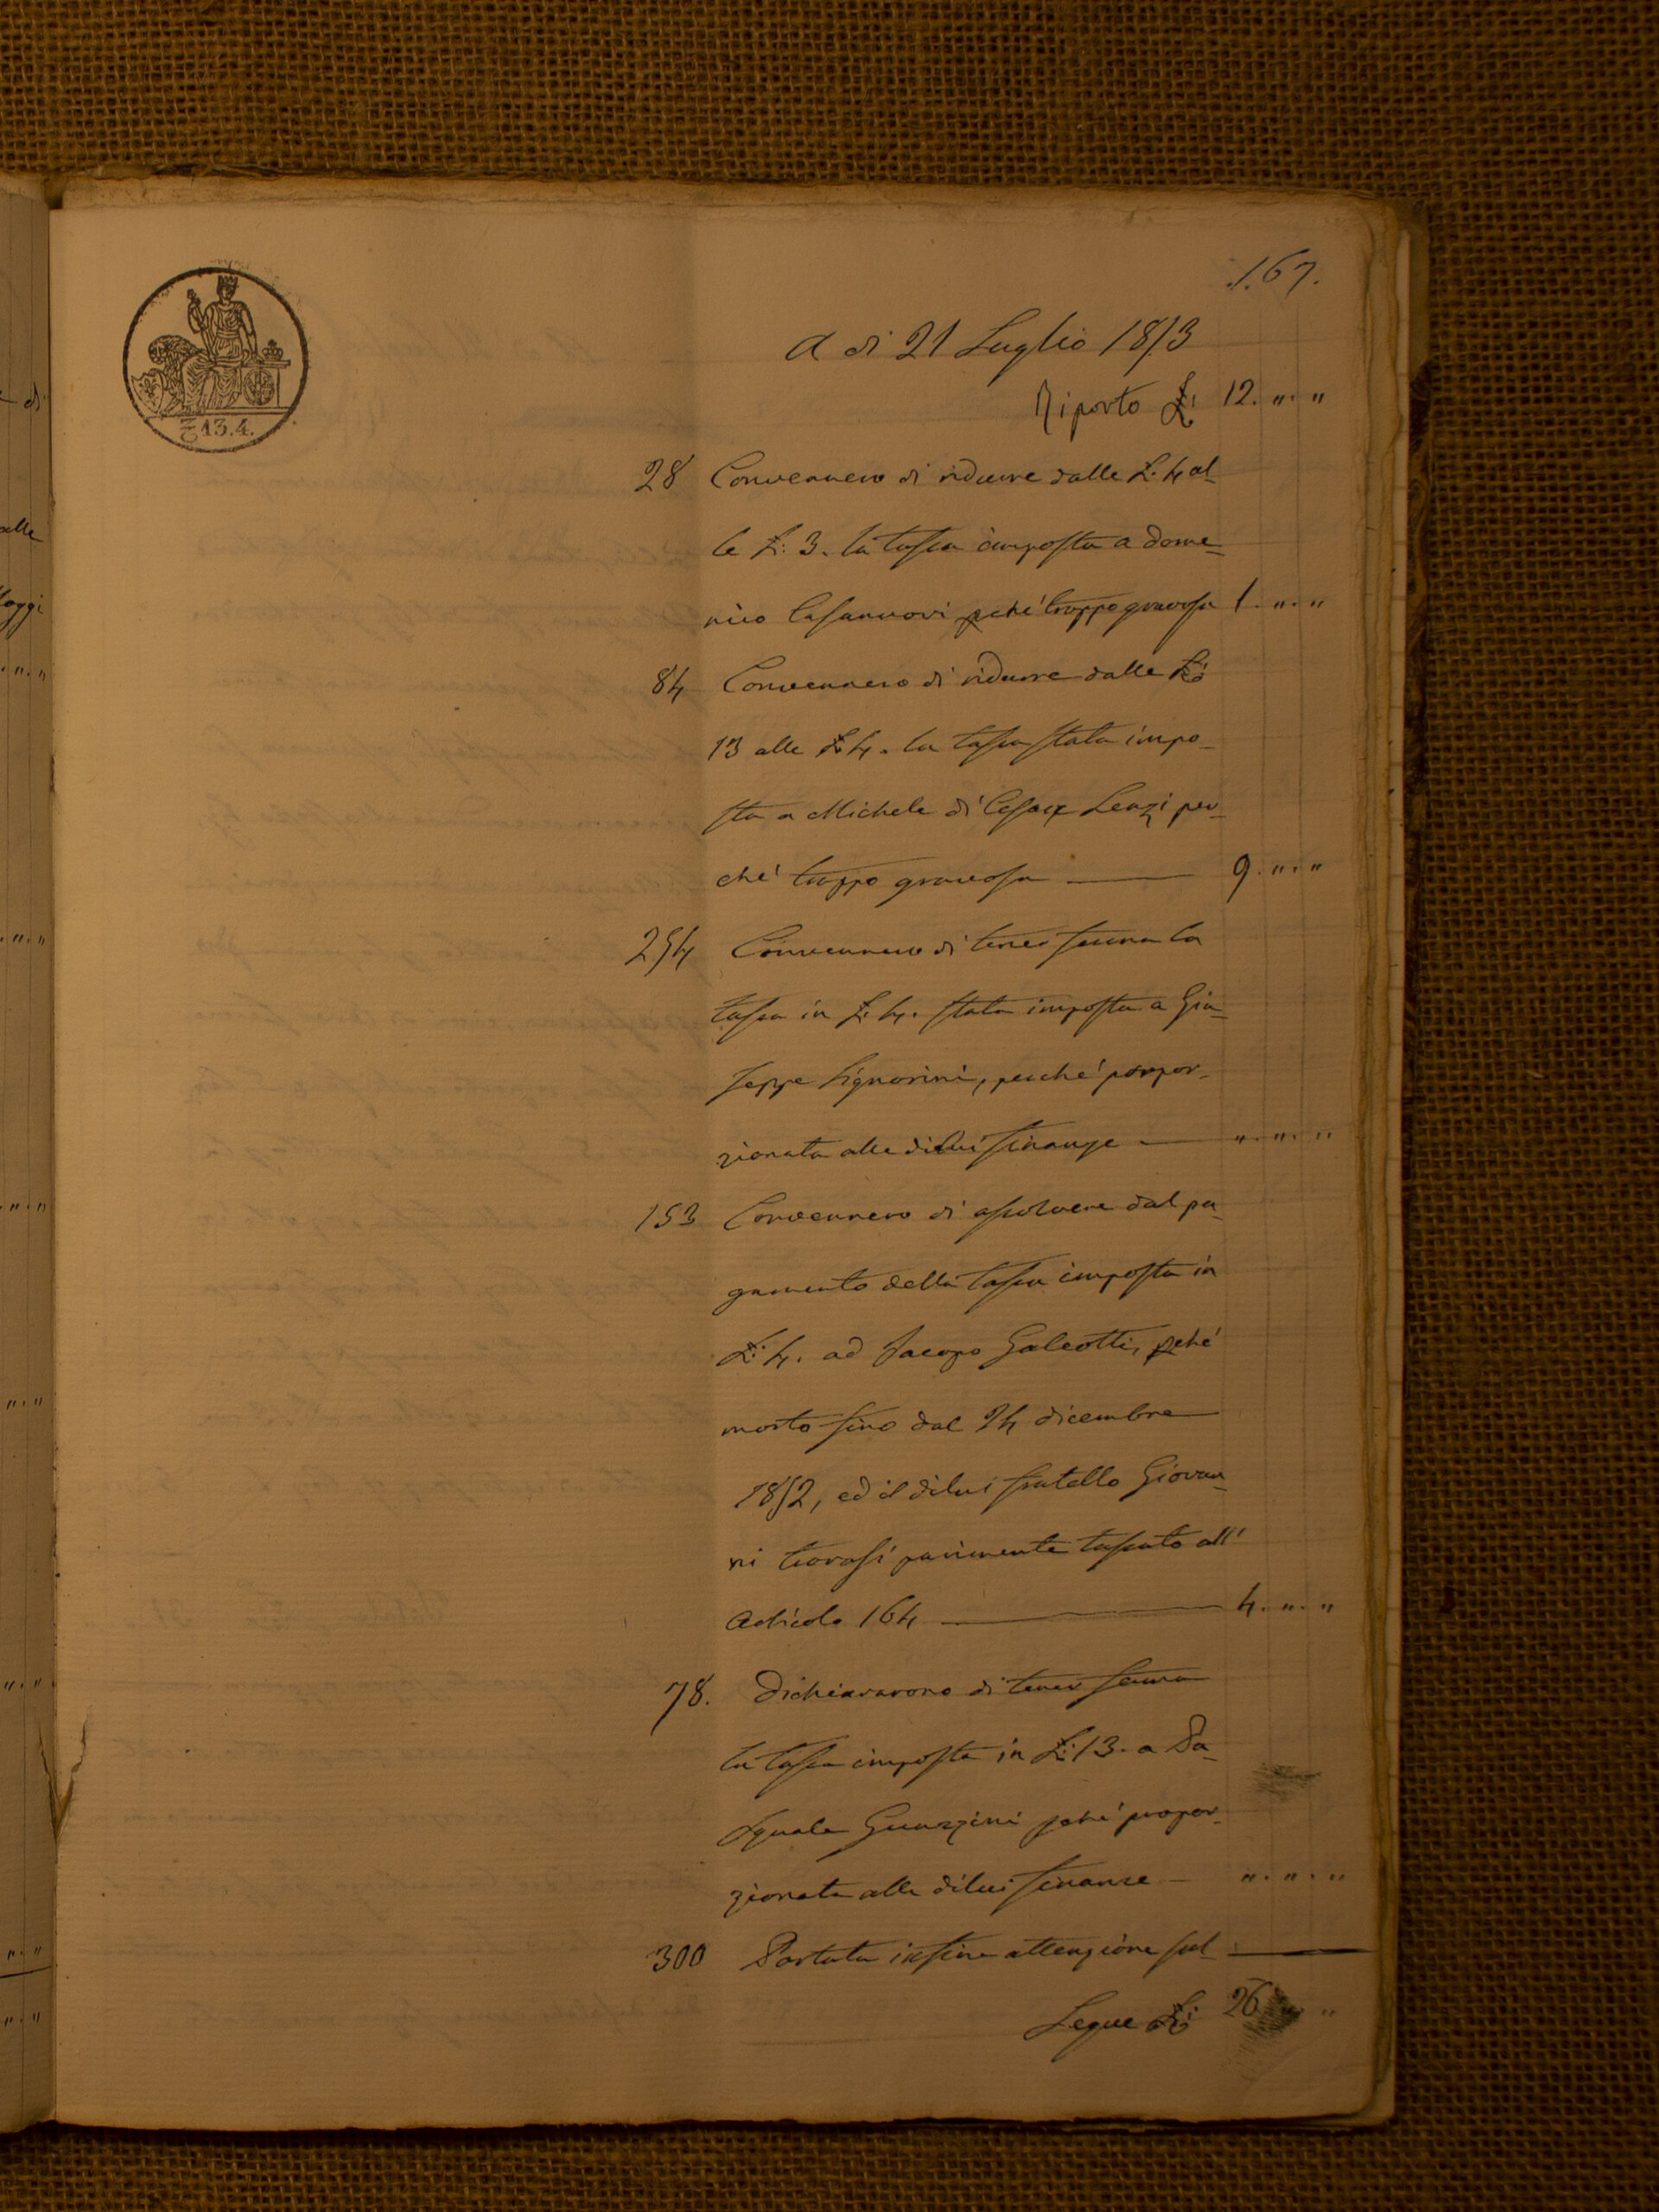 167.
13.4.
A di 21 Luglio 1853
Riporto £: 12. „. „
28 Convennero di ridurre dalle £. 4 al-
le £: 3. la tassa imposta a Dome-
nico Casanuovi pchè troppo gravosa 1. „. „
84 Convennero di ridurre dalle £:
13 alle £ 4. la tassa stata impo-
sta a Michele di Cesare Lenzi per-
chè troppo gravosa 9. „. „
254 Convennero di tener ferma la
tassa in £. 4. stata imposta a Giu-
seppe Signorini, perchè propor-
zionata alle dilui finanze „. „. „
153 Convennero di assolvere dal pa-
gamento della tassa imposta in
£: 4. ad Jacopo Galeotti, pchè
morto fino dal 24 dicembre
1852, ed il dilui fratello Giovan-
ni trovasi parimente tassato all'
Articolo 164 4. „. „
78. Dichiararono di tener ferma
la tassa imposta in £: 13. a Pa-
squale Guazzini pchè propor-
zionata alle dilui finanze „. „. „
300 Portata infine attenzione sul
Segue £: 26 „
di
alle
loggi